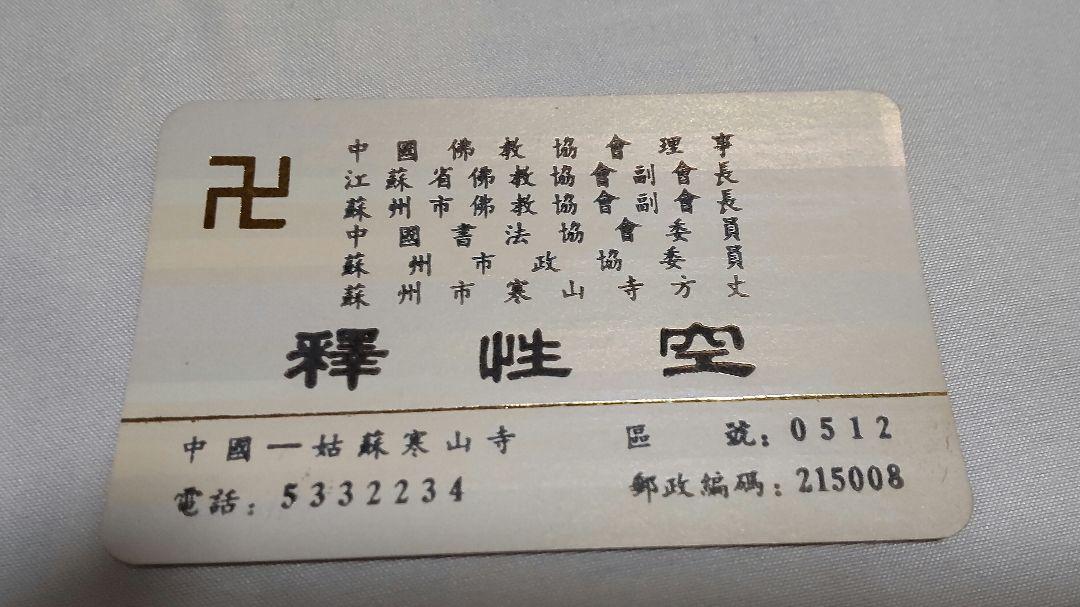 卍
中國佛教協會理事
江蘇省佛教協會副會長
蘇州市佛教協會副會長
中國書法協會委員
蘇州市政協委員
蘇州市寒山寺方丈
釋性空
中國一姑蘇寒山寺 區號：0512
電話：5332234 郵政編碼：215008